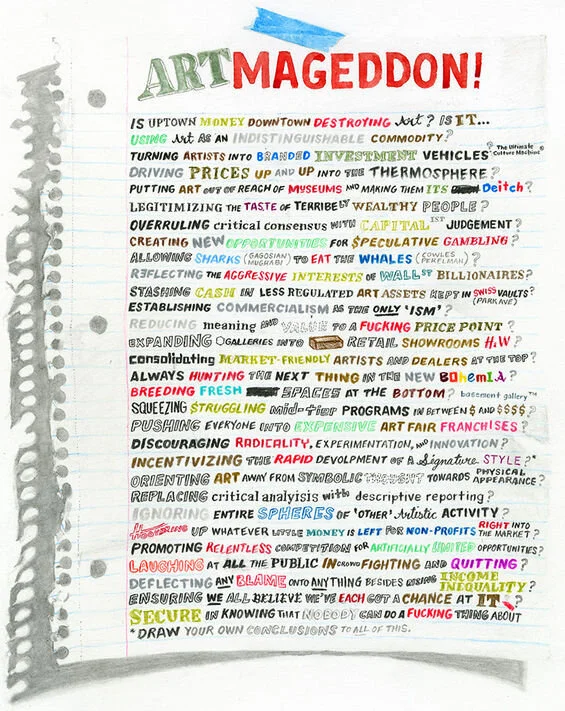 ARTMAGEDDON!
IS UPTOWN MONEY DOWNTOWN DESTROYING Art? IS IT...
USING Art AS AN INDISTINGUISHABLE COMMODITY?
TURNING ARTISTS INTO BRANDED INVESTMENT VEHICLES? "The Ultimate Culture Machine"
DRIVING PRICES UP AND UP INTO THE THERMOSPHERE?
PUTTING ART OUT OF REACH OF MUSEUMS AND MAKING THEM ITS Deitch?
LEGITIMIZING THE TASTE OF TERRIBELY WEALTHY PEOPLE?
OVERRULING critical consensus WITH CAPITAL IST JUDGEMENT?
CREATING NEW OPPORTUNITIES FOR $PECULATIVE GAMBLING?
ALLOWING SHARKS (GAGOSIAN MUGRABI) TO EAT THE WHALES (COWLES PERELMAN)?
REFLECTING THE AGGRESSIVE INTERESTS OF WALL ST BILLIONAIRES?
STASHING CASH IN LESS REGULATED ART ASSETS KEPT IN SWISS VAULTS? (PARK AVE)
ESTABLISHING COMMERCIALISM AS THE ONLY 'ISM'?
REDUCING meaning AND VALUE TO A FUCKING PRICE POINT?
EXPANDING GALLERIES INTO RETAIL SHOWROOMS H&W?
consolidating MARKET-FRIENDLY ARTISTS AND DEALERS AT THE TOP?
ALWAYS HUNTING THE NEXT THING IN THE NEW BOHEMIA?
BREEDING FRESH SPACES AT THE BOTTOM? basement gallery™
SQUEEZING $TRUGGLING mid-tier PROGRAMS IN BETWEEN $ AND $$$$?
PUSHING EVERYONE INTO EXPENSIVE ART FAIR FRANCHISES?
DISCOURAGING RADICALITY, EXPERIMENTATION, AND INNOVATION?
INCENTIVIZING THE RAPID DEVOLPMENT OF A Signature STYLE?*
ORIENTING ART AWAY FROM SYMBOLIC THOUGHT TOWARDS PHYSICAL APPEARANCE?
REPLACING critical analyisis with descriptive reporting?
IGNORING ENTIRE SPHERES OF 'OTHER' Artistic ACTIVITY?
HOOVERING UP WHATEVER LITTLE MONEY IS LEFT FOR NON-PROFITS RIGHT INTO THE MARKET?
PROMOTING RELENTLESS COMPETITION FOR ARTIFICIALLY LIMITED OPPORTUNITIES?
LAUGHING AT ALL THE PUBLIC IN CROWD FIGHTING AND QUITTING?
DEFLECTING ANY BLAME ONTO ANYTHING BESIDES INCOME INEQUALITY?
ENSURING WE ALL BELIEVE WE'VE EACH GOT A CHANCE AT IT?
SECURE IN KNOWING THAT NOBODY CAN DO A FUCKING THING ABOUT
*DRAW YOUR OWN CONCLUSIONS TO ALL OF THIS.